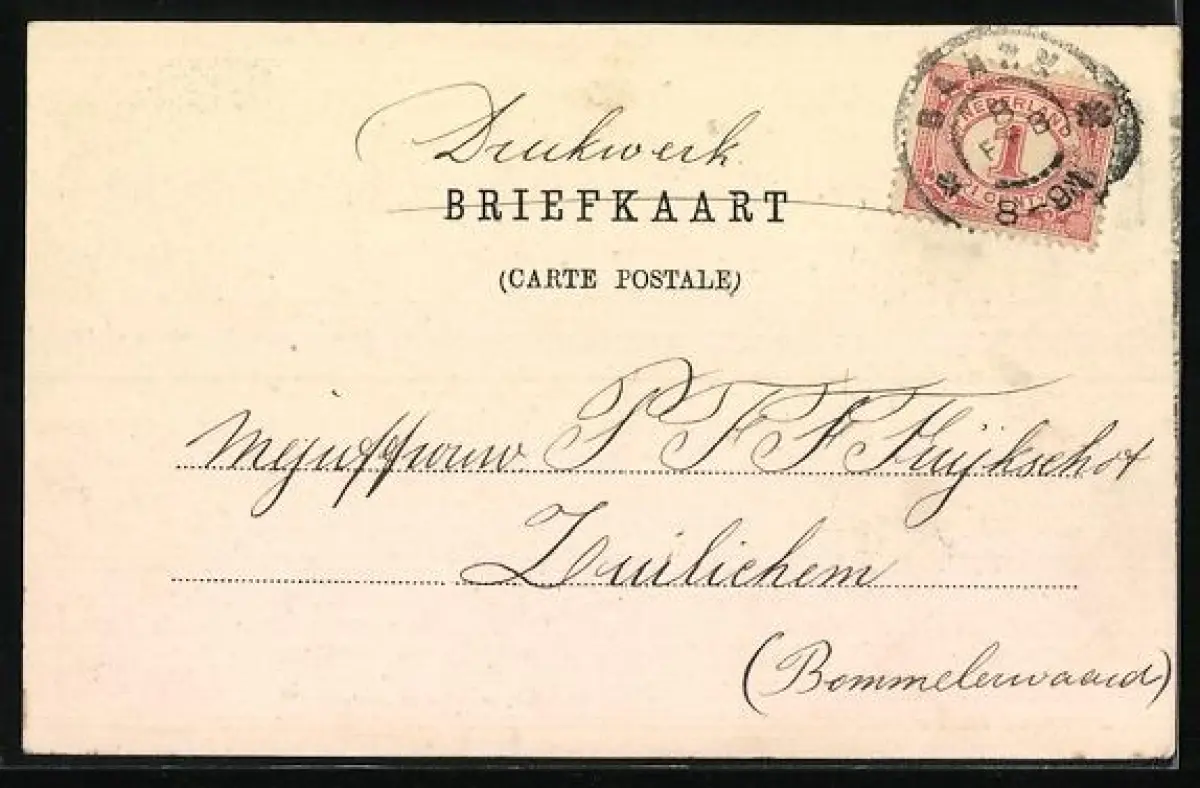 Drukwerk
BRIEFKAART
(CARTE POSTALE)
NEDERLAND
1
CENT
8-9N
Mejuffrouw P F F Kuijkschot
Zuilichem
(Bommelerwaard)